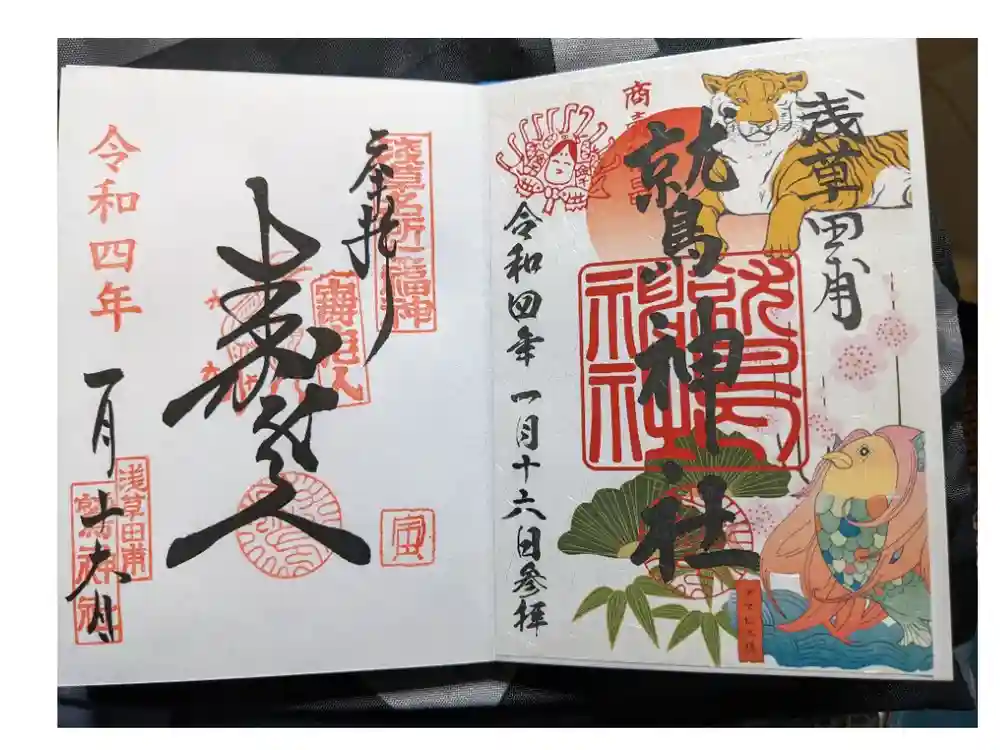 浅草田甫
鷲神社
鷲神社
商
アマビエ様
令和四年一月十六日参拝
浅草名所七福神
奉拝
壽老人
寿老人
寅
浅草田甫
鷲神社
令和四年
一月十六日